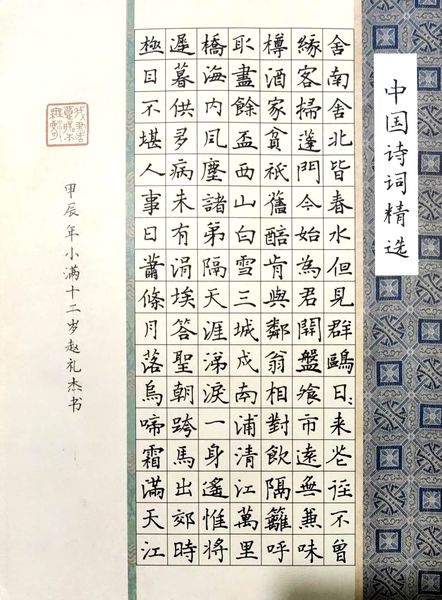 中国诗词精选
舍南舍北皆春水但見群鷗日〻来花徑不曾
緣客掃蓬門今始為君開盤飧市遠無兼味
樽酒家貧祇舊醅肯與鄰翁相對飲隔籬呼
取盡餘盃西山白雪三城戍南浦清江萬里
橋海内風塵諸弟隔天涯涕淚一身遙惟將
遲暮供多病未有涓埃答聖朝跨馬出郊時
極目不堪人事日蕭條月落烏啼霜滿天江
甲辰年小满十二岁赵礼杰书